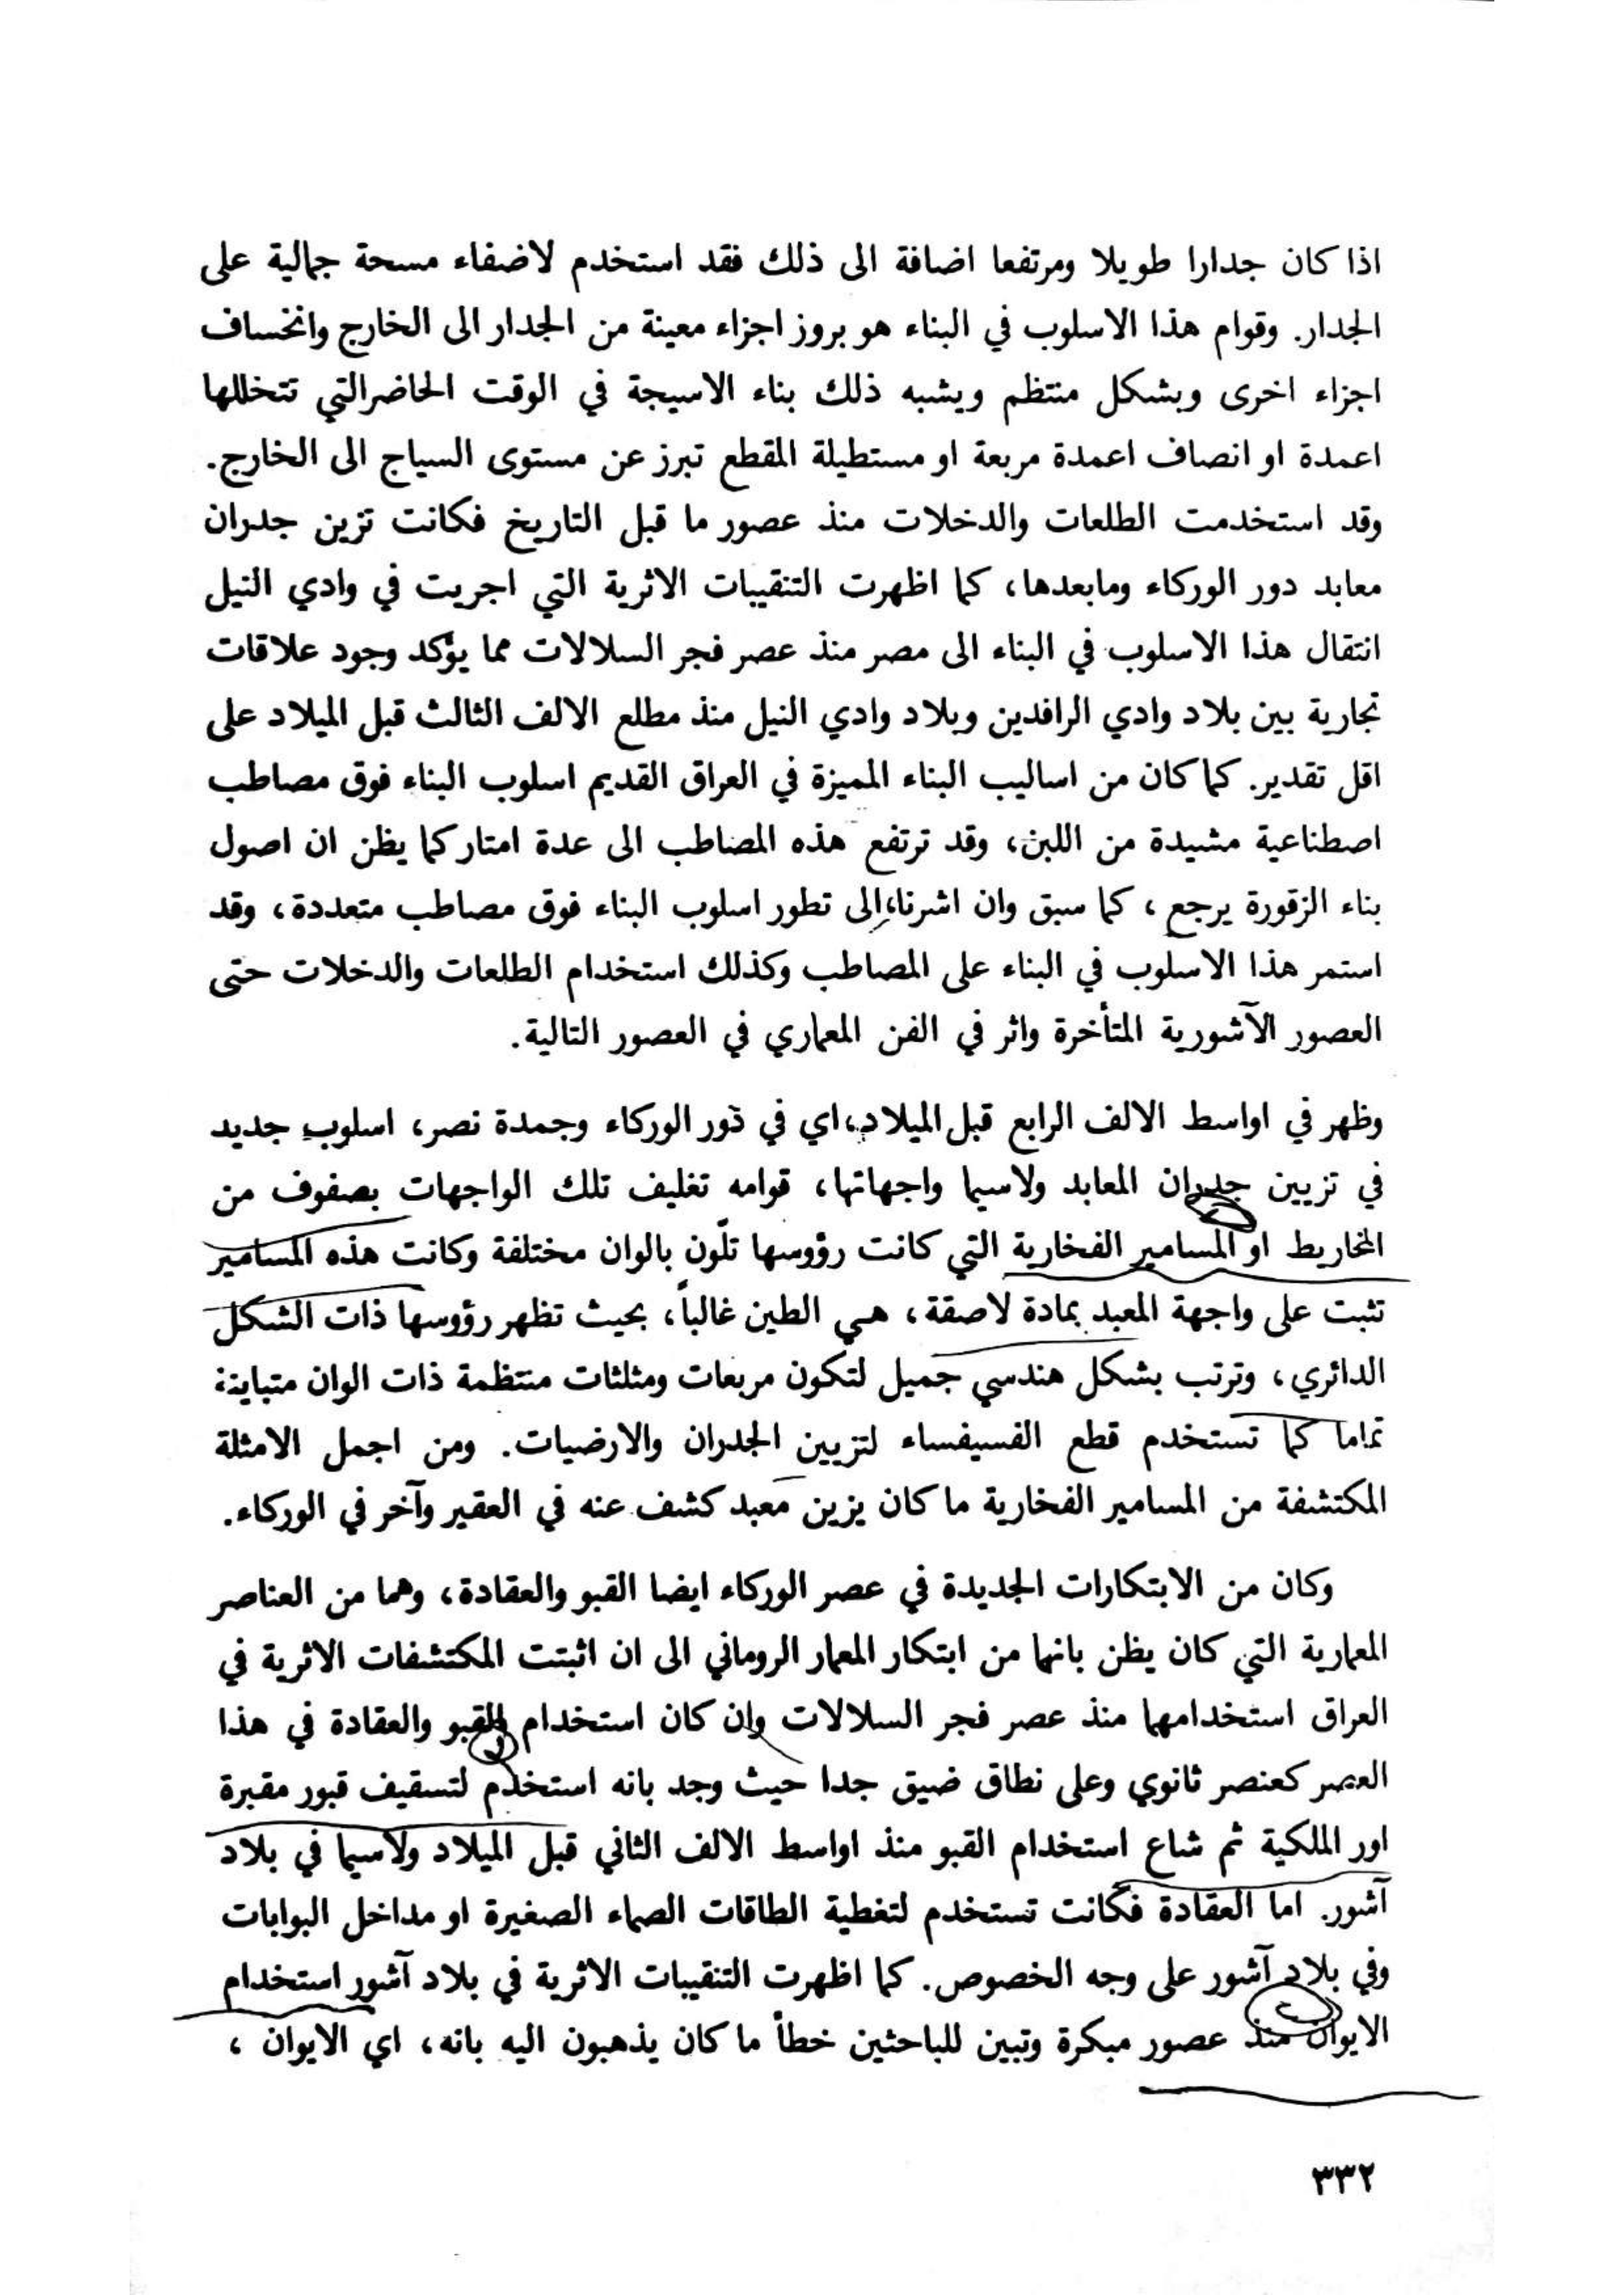 اذا كان جدارا طويلا ومرتفعا اضافة الى ذلك فقد استخدم لاضفاء مسحة جمالية على
الجدار. وقوام هذا الاسلوب في البناء هو بروز اجزاء معينة من الجدار الى الخارج وانخساف
اجزاء اخرى وبشكل منتظم ويشبه ذلك بناء الاسيجة في الوقت الحاضرالتي تتخللها
اعمدة او انصاف اعمدة مربعة او مستطيلة المقطع تبرز عن مستوى السياج الى الخارج.
وقد استخدمت الطلعات والدخلات منذ عصور ما قبل التاريخ فكانت تزين جدران
معابد دور الوركاء ومابعدها، كما اظهرت التنقيبات الاثرية التي اجريت في وادي النيل
انتقال هذا الاسلوب في البناء الى مصر منذ عصر فجر السلالات مما يؤكد وجود علاقات
تجارية بين بلاد وادي الرافدين وبلاد وادي النيل منذ مطلع الالف الثالث قبل الميلاد على
اقل تقدير. كما كان من اساليب البناء المميزة في العراق القديم اسلوب البناء فوق مصاطب
اصطناعية مشيدة من اللبن، وقد ترتفع هذه المصاطب الى عدة امتار كما يظن ان اصول
بناء الزقورة يرجع ، كما سبق وان اشرنا، إلى تطور اسلوب البناء فوق مصاطب متعددة، وقد
استمر هذا الاسلوب في البناء على المصاطب وكذلك استخدام الطلعات والدخلات حتى
العصور الآشورية المتأخرة واثر في الفن المعماري في العصور التالية.
وظهر في اواسط الالف الرابع قبل الميلاد، اي في دور الوركاء وجمدة نصر، اسلوب جديد
في تزيين جدران المعابد ولاسيما واجهاتها، قوامه تغليف تلك الواجهات بصفوف من
المخاريط او المسامير الفخارية التي كانت رؤوسها تلّون بالوان مختلفة وكانت هذه المسامير
تثبت على واجهة المعبد بمادة لاصقة، هي الطين غالباً، بحيث تظهر رؤوسها ذات الشكل
الدائري، وترتب بشكل هندسي جميل لتكون مربعات ومثلثات منتظمة ذات الوان متباينة
تماما كما تستخدم قطع الفسيفساء لتزيين الجدران والارضيات. ومن اجمل الامثلة
المكتشفة من المسامير الفخارية ما كان يزين معبد كشف عنه في العقير وآخر في الوركاء.
وكان من الابتكارات الجديدة في عصر الوركاء ايضا القبو والعقادة، وهما من العناصر
المعمارية التي كان يظن بانها من ابتكار المعمار الروماني الى ان اثبتت المكتشفات الاثرية في
العراق استخدامهما منذ عصر فجر السلالات وان كان استخدام القبو والعقادة في هذا
العصر كعنصر ثانوي وعلى نطاق ضيق جدا حيث وجد بانه استخدم لتسقيف قبور مقبرة
اور الملكية ثم شاع استخدام القبو منذ اواسط الالف الثاني قبل الميلاد ولاسيما في بلاد
آشور. اما العقادة فكانت تستخدم لتغطية الطاقات الصماء الصغيرة او مداخل البوابات
وفي بلاد آشور على وجه الخصوص. كما اظهرت التنقيبات الاثرية في بلاد آشور استخدام
الايوان منذ عصور مبكرة وتبين للباحثين خطأ ما كان يذهبون اليه بانه، اي الايوان ،
٣٣٢